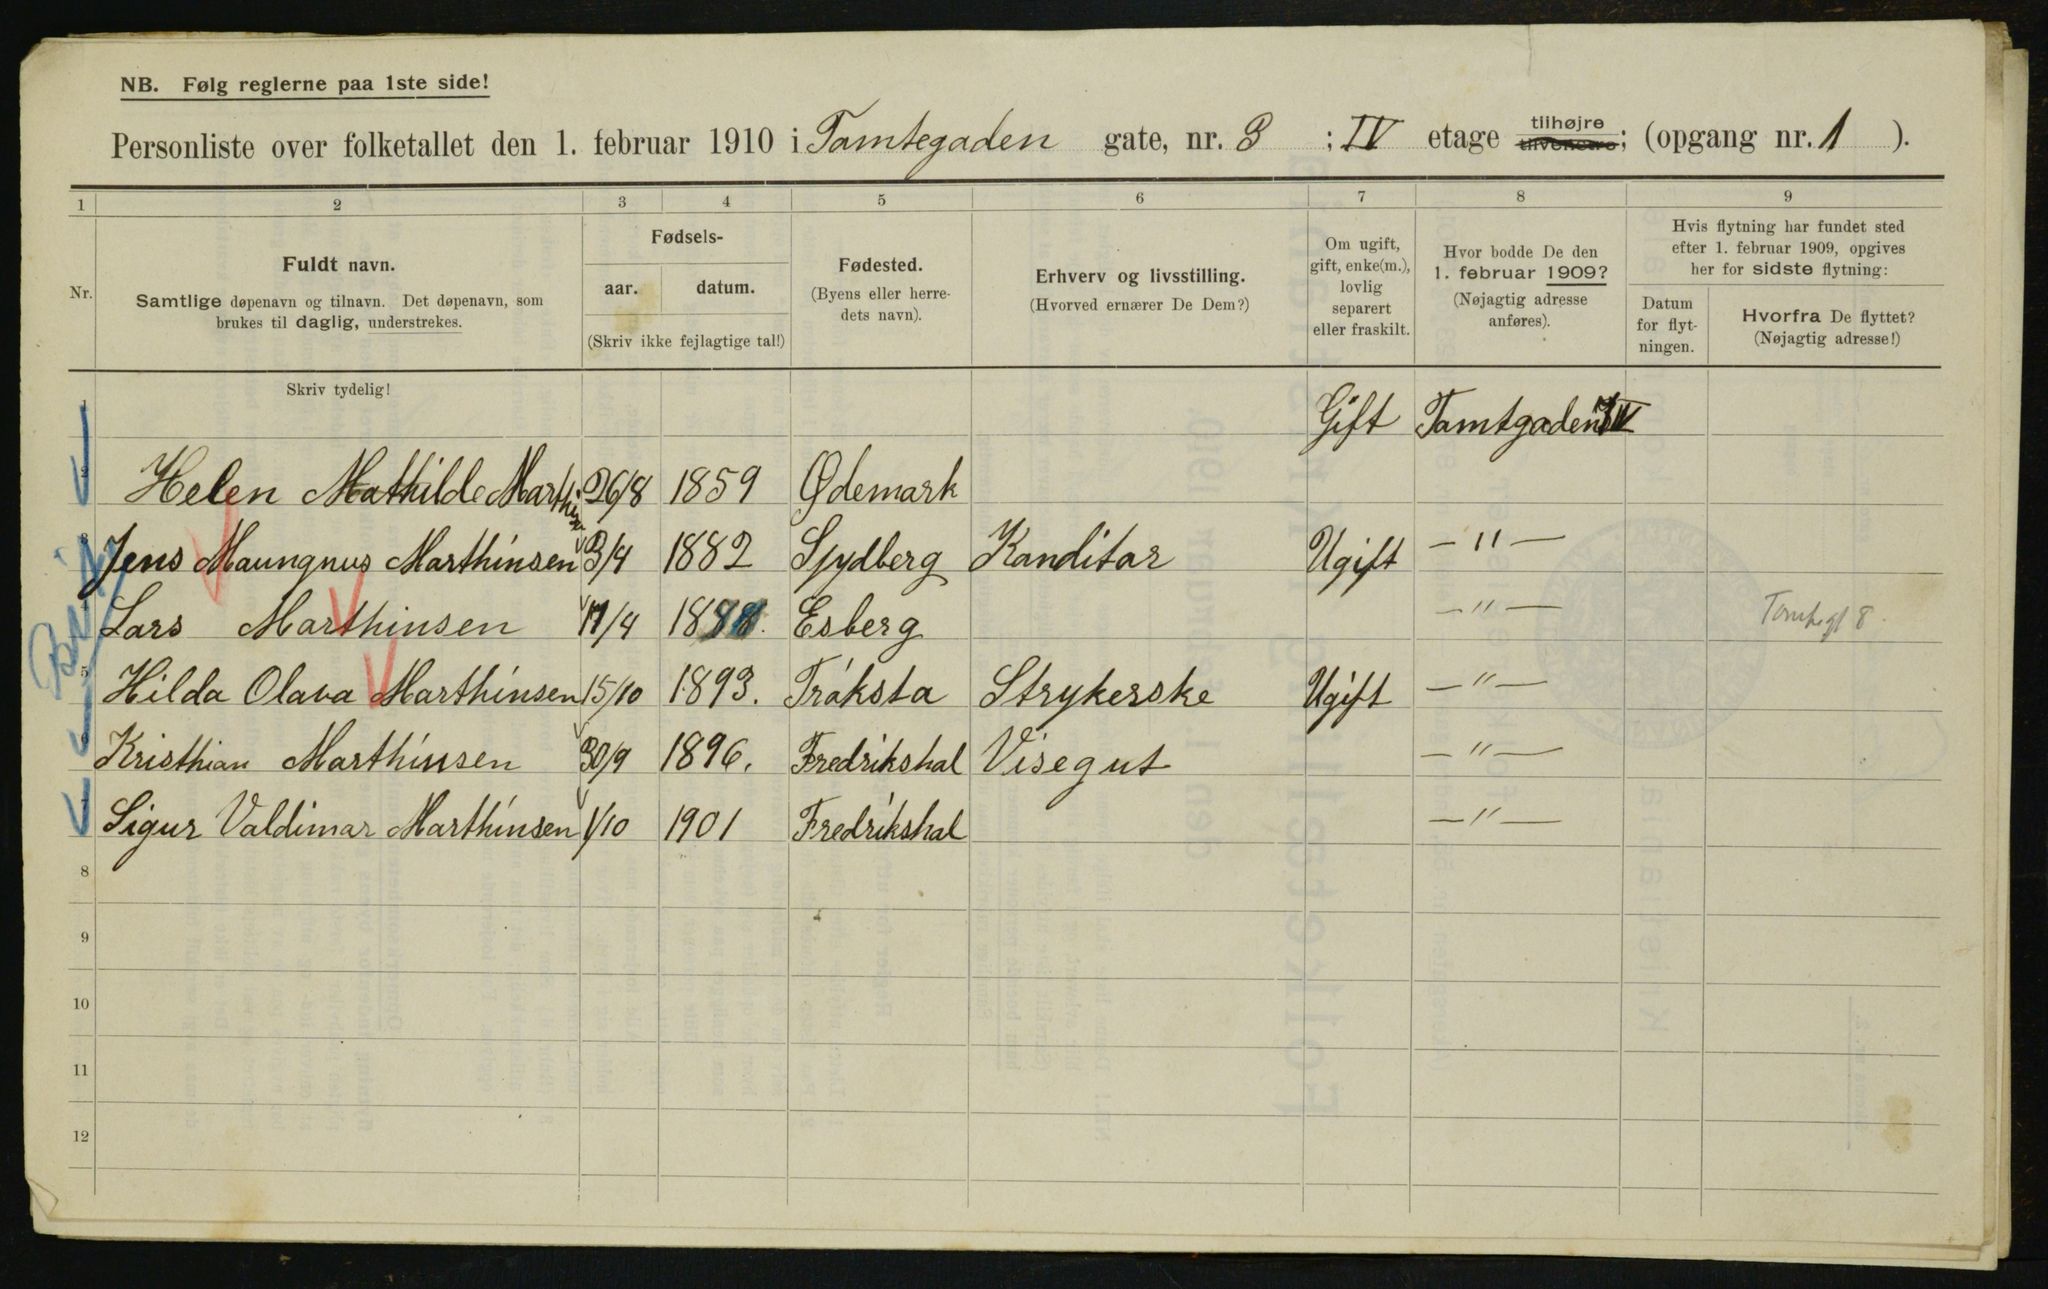 NB. Følg reglerne paa 1ste side!
Personliste over folketallet den 1. februar 1910 i Tomtegaden gate, nr. 3 ; IV etage tilhøjre tilvenstre; (opgang nr. 1 ).
1 2 3 4 5 6 7 8 9
Nr.
Fuldt navn.
Samtlige døpenavn og tilnavn. Det døpenavn, som
brukes til daglig, understrekes.
Fødsels-
aar. datum.
(Skriv ikke fejlagtige tal!)
Fødested.
(Byens eller herre-
dets navn).
Erhverv og livsstilling.
(Hvorved ernærer De Dem?)
Om ugift,
gift, enke(m.),
lovlig
separert
eller fraskilt.
Hvor bodde De den
1. februar 1909?
(Nøjagtig adresse
anføres).
Hvis flytning har fundet sted
efter 1. februar 1909, opgives
her for sidste flytning:
Datum
for flyt-
ningen.
Hvorfra De flyttet?
(Nøjagtig adresse!)
Skriv tydelig!
1 Gift Tomtgaden 3 IV
2 Helen Mathilde Marthinsen 26/8 1859 Ødemark
3 Jens Maungnus Marthinsen 3/4 1882 Spydberg Kanditor Ugift — " —
4 Lars Marthinsen 17/4 1888. Esberg — " — Tomtegt 8.
5 Hilda Olava Marthinsen 15/10 1893. Tróksta Strykerske Ugift — " —
6 Kristhian Marthinsen 30/9 1896. Fredrikshal Visegut — " —
7 Sigur Valdimar Marthinsen 1/10 1901 Fredrikshal — " —
8
9
10
11
12